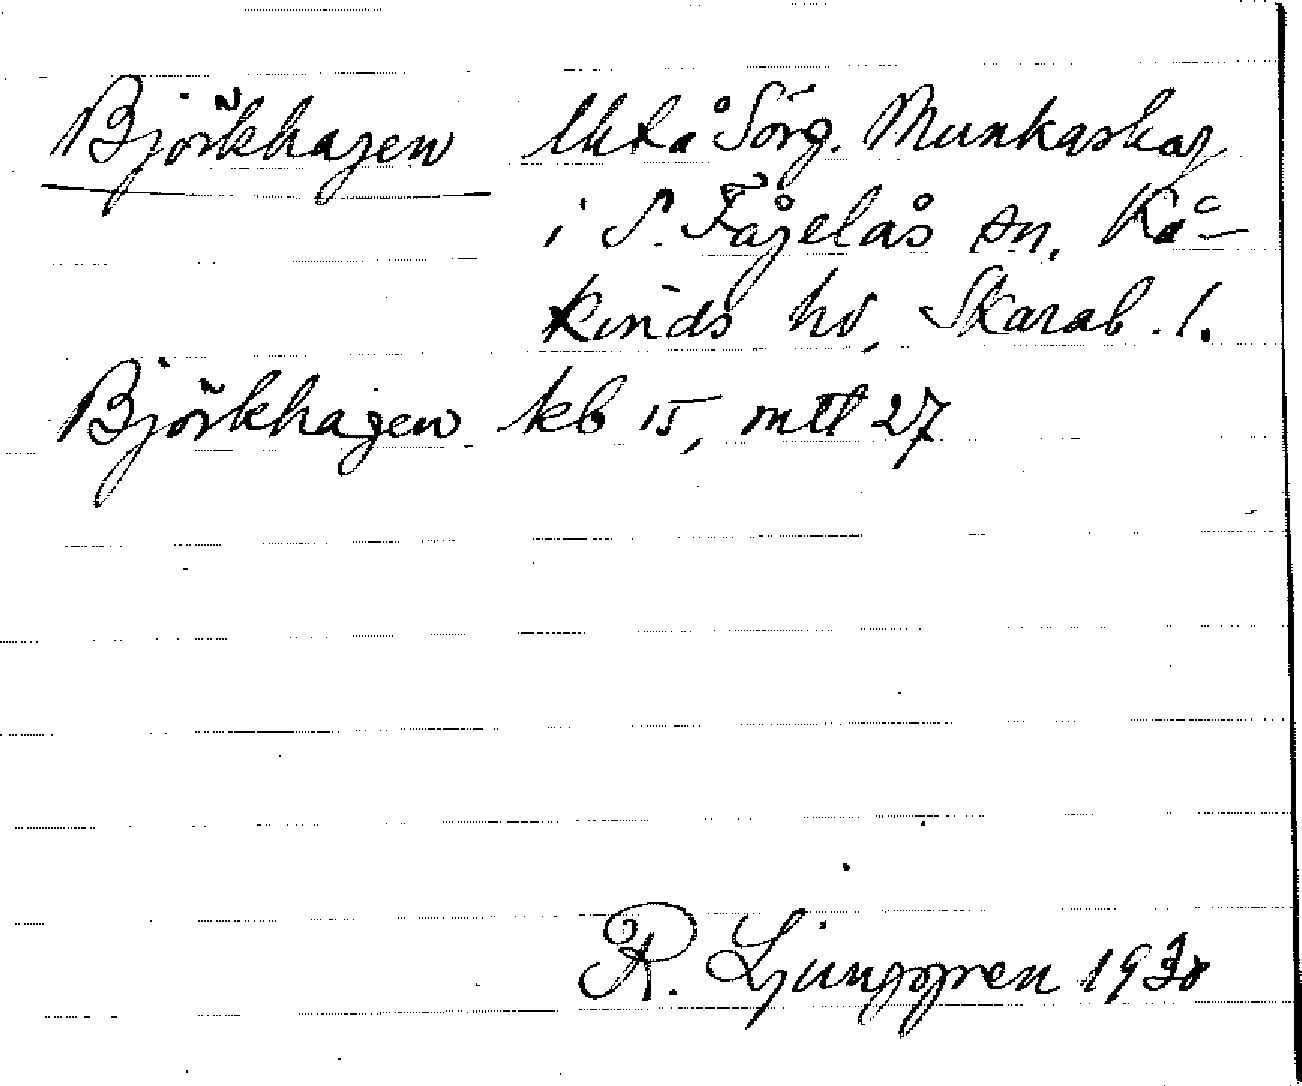 Björkhagen lht å Sörg. Munkaskog
i S. Fågelås sn, Kå-
kinds hd, Skarab. l.
Björkhagen kb 15, mtl 27
R. Ljunggren 1930